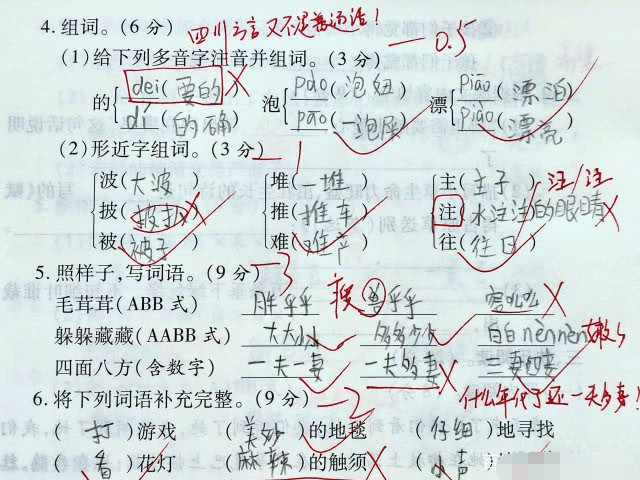 四川方言又不是普通话!
4.组词。(6分) -0.5
(1)给下列多音字注音并组词。(3分)
的 dei(要的) 泡 pào(泡妞) 漂 piāo(漂泊)
dí(的确) pāo(一泡尿) piào(漂亮)
(2)形近字组词。(3分) -1
波(大波) 堆(一堆) 主(主子) 注/注
披(披挂) 推(推车) 注(水注注的眼睛)
被(被子) 难(难产) 往(往日)
5.照样子,写词语。(9分) -3
毛茸茸(ABB式) 胖乎乎 瘦 兽乎乎
躲躲藏藏(AABB式) 大大小小 多多少少 白白nènnèn 嫩
四面八方(含数字) 一夫一妻 一夫多妻 三妻四妾
6.将下列词语补充完整。(9分) -2 什么年代了还一夫多妻!
(打)游戏 (美妙)的地毯 (仔细)地寻找
(看)花灯 (麻辣)的触须 (小声)